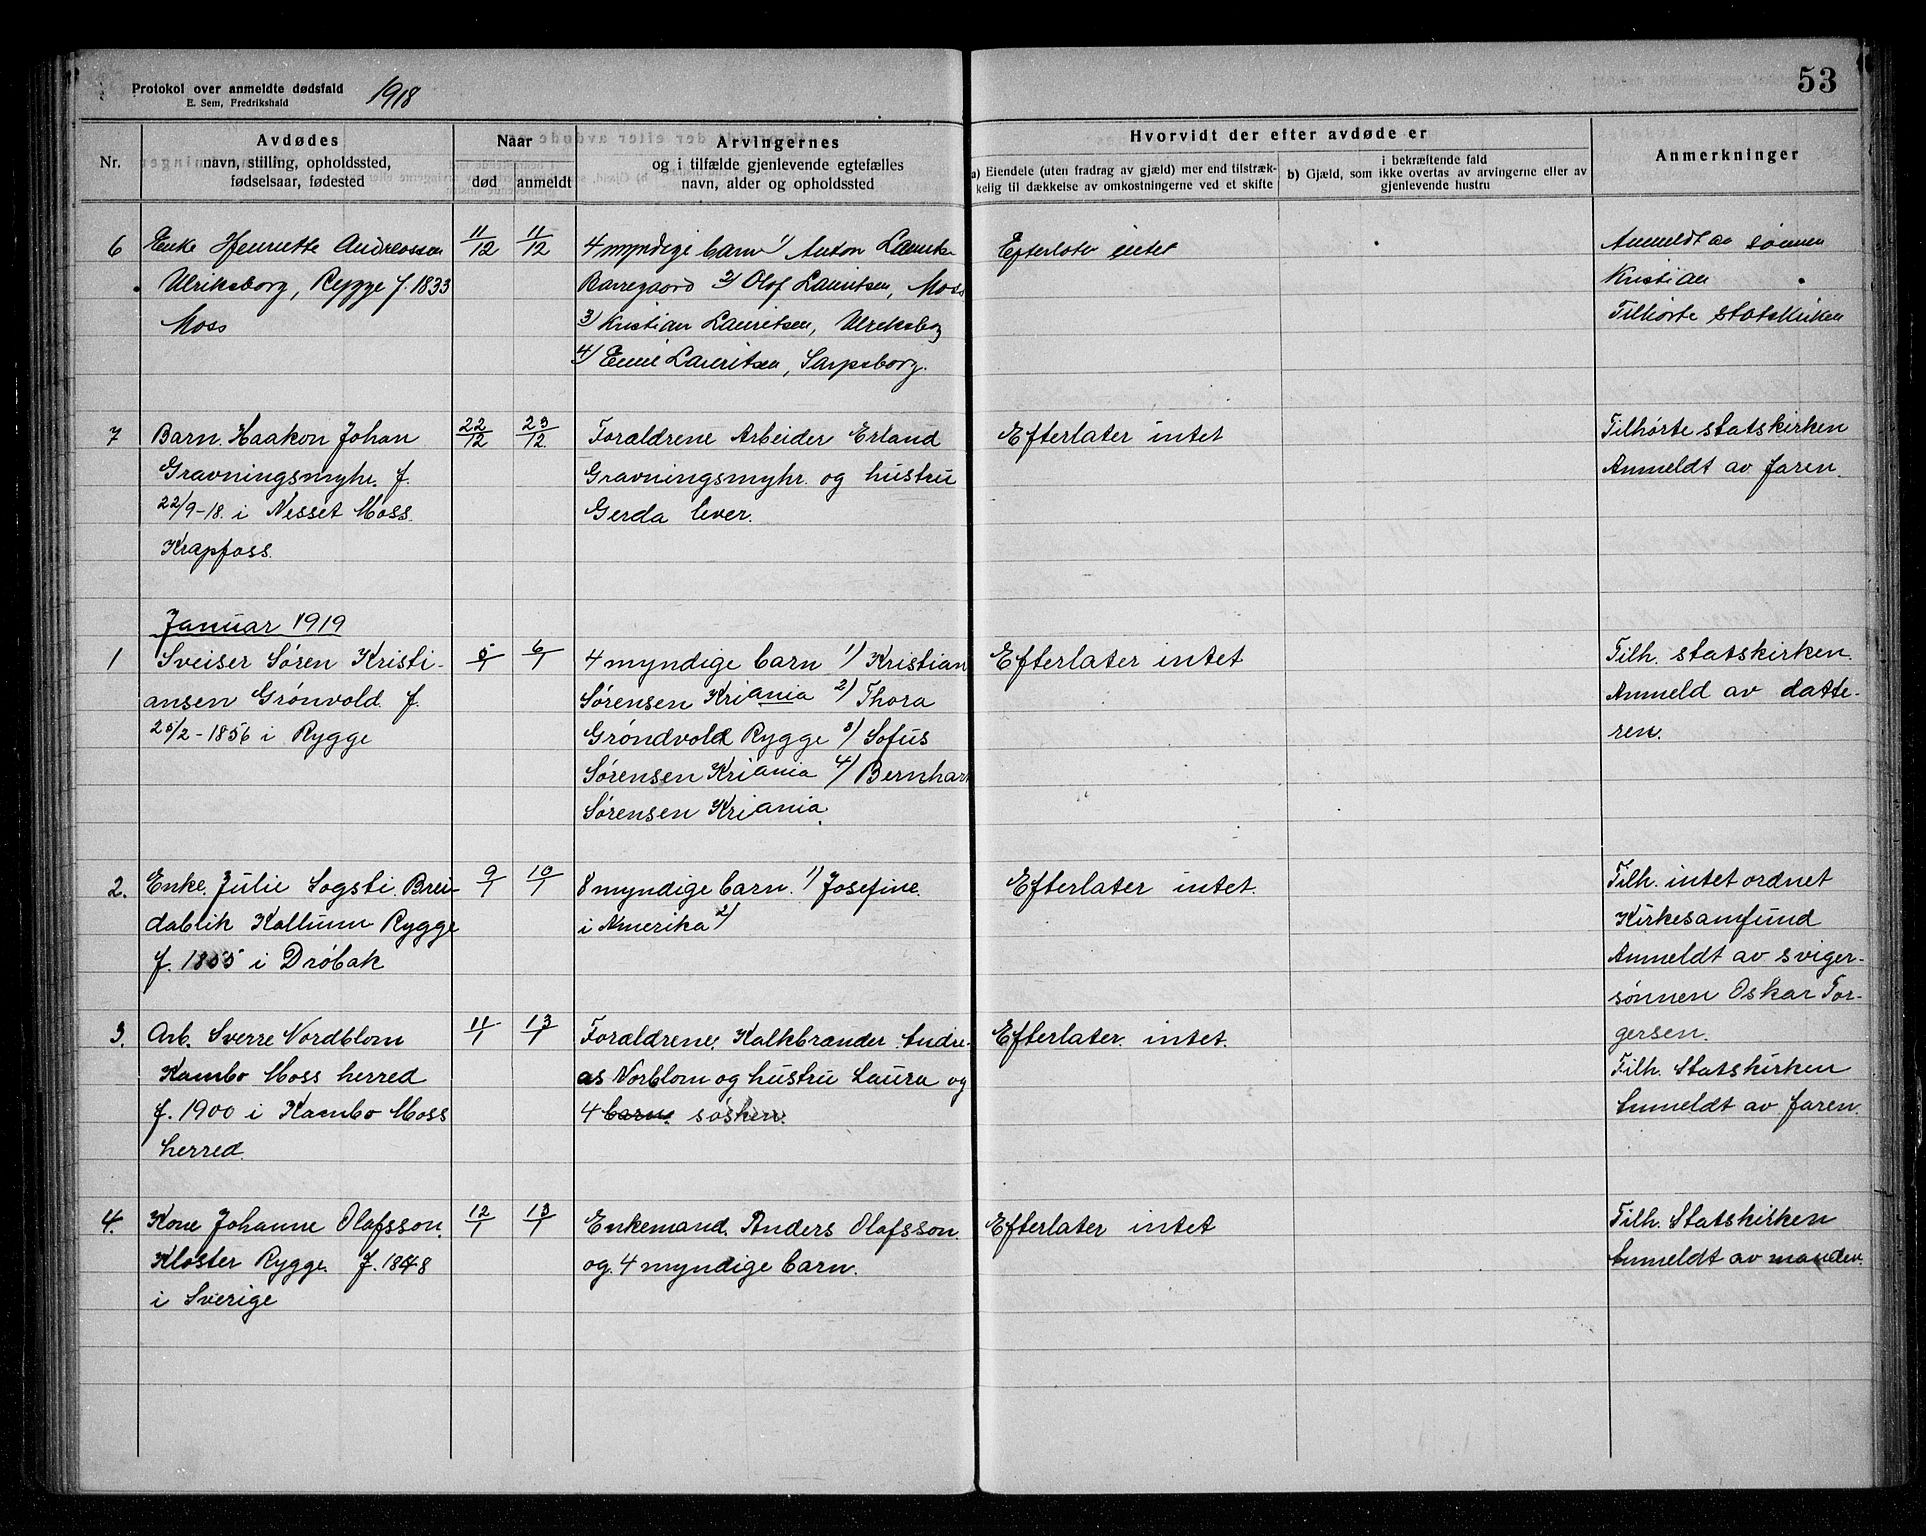 Protokol over anmeldte dødsfald
E. Sem, Fredrikshald
1918
53
Nr.
Avdødes
navn, stilling, opholdssted,
fødselsaar, fødested
Naar
død
anmeldt
Arvingernes
og i tilfælde gjenlevende egtefælles
navn, alder og opholdssted
Hvorvidt der efter avdøde er
a) Eiendele (uten fradrag av gjæld) mer end tilstræk-
kelig til dækkelse av omkostningerne ved et skifte
i bekræftende fald
b) Gjæld, som ikke overtas av arvingerne eller av
gjenlevende hustru
Anmerkninger
6
Enke Henriette Andreassen
Ulriksborg, Rygge f. 1833
Moss
11/12
11/12
4 myndige barn 1) Anton
Barregaard 2) Olof Lauritsen, Moss
3) Kristian Lauritsen, Ulriksborg
4) Emil Lauritsen, Sarpsborg.
Efterlater intet
Anmeldt av sønnen
Kristian
Tilhørte statskirken
7
Barn. Haakon Johan
Gravningsmyhr. f.
22/9-18. i Nesset Moss.
Krapfoss.
22/12
23/12
Forældrene Arbeider Erland
Gravningsmyhr. og hustru
Gerda lever.
Efterlater intet
Tilhørte statskirken
Anmeldt av faren.
Januar 1919
1
Sveiser Søren Kristi-
ansen Grønvold. f.
25/2-1856 i Rygge
5/1
6/1
4 myndige barn 1) Kristian
Sørensen Kriania 2) Thora
Grøndvold Rygge 3) Sofus
Sørensen Kriania 4) Bernhard
Sørensen Kriania.
Efterlater intet
Tilh. statskirken.
Anmeld av datte-
ren.
2.
Enke. Julie Sogsti. Brei-
dablik Kallum Rygge
f. 1855 i Drøbak
9/1
10/1
8 myndige barn. 1) Josefine.
i Amerika 2)
Efterlater intet.
Tilh. intet ordnet
Kirkesamfund
Anmeldt av sviger-
sønnen Oskar Tor-
gersen.
3.
Arb. Sverre Nordblom
Kambo Moss herred
f. 1900 i Kambo Moss
herred.
11/1
13/1
Forældrene. Kalkbrænder. Andre-
as Norblom og hustru Laura og
4 barn. søsken.
Efterlater. intet.
Tilh. Statskirken
Anmeldt av faren.
4.
Kone Johanne Olafsson.
Kloster Rygge. f. 1848
i Sverige
12/1
13/1
Enkemand. Anders Olafsson.
og. 4 myndige barn.
Efterlater intet
Tilh. Statskirken
Anmeldt av manden.